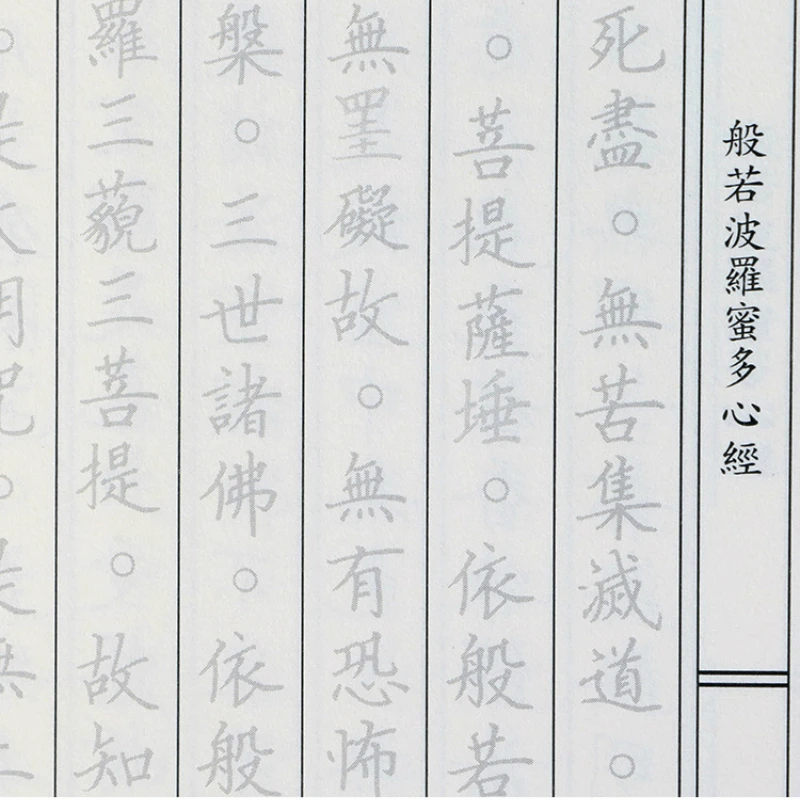 般若波羅蜜多心經
死盡。無苦集滅道。
。菩提薩埵。依般若
無罣礙故。無有恐怖
槃。三世諸佛。依般
羅三藐三菩提。故知